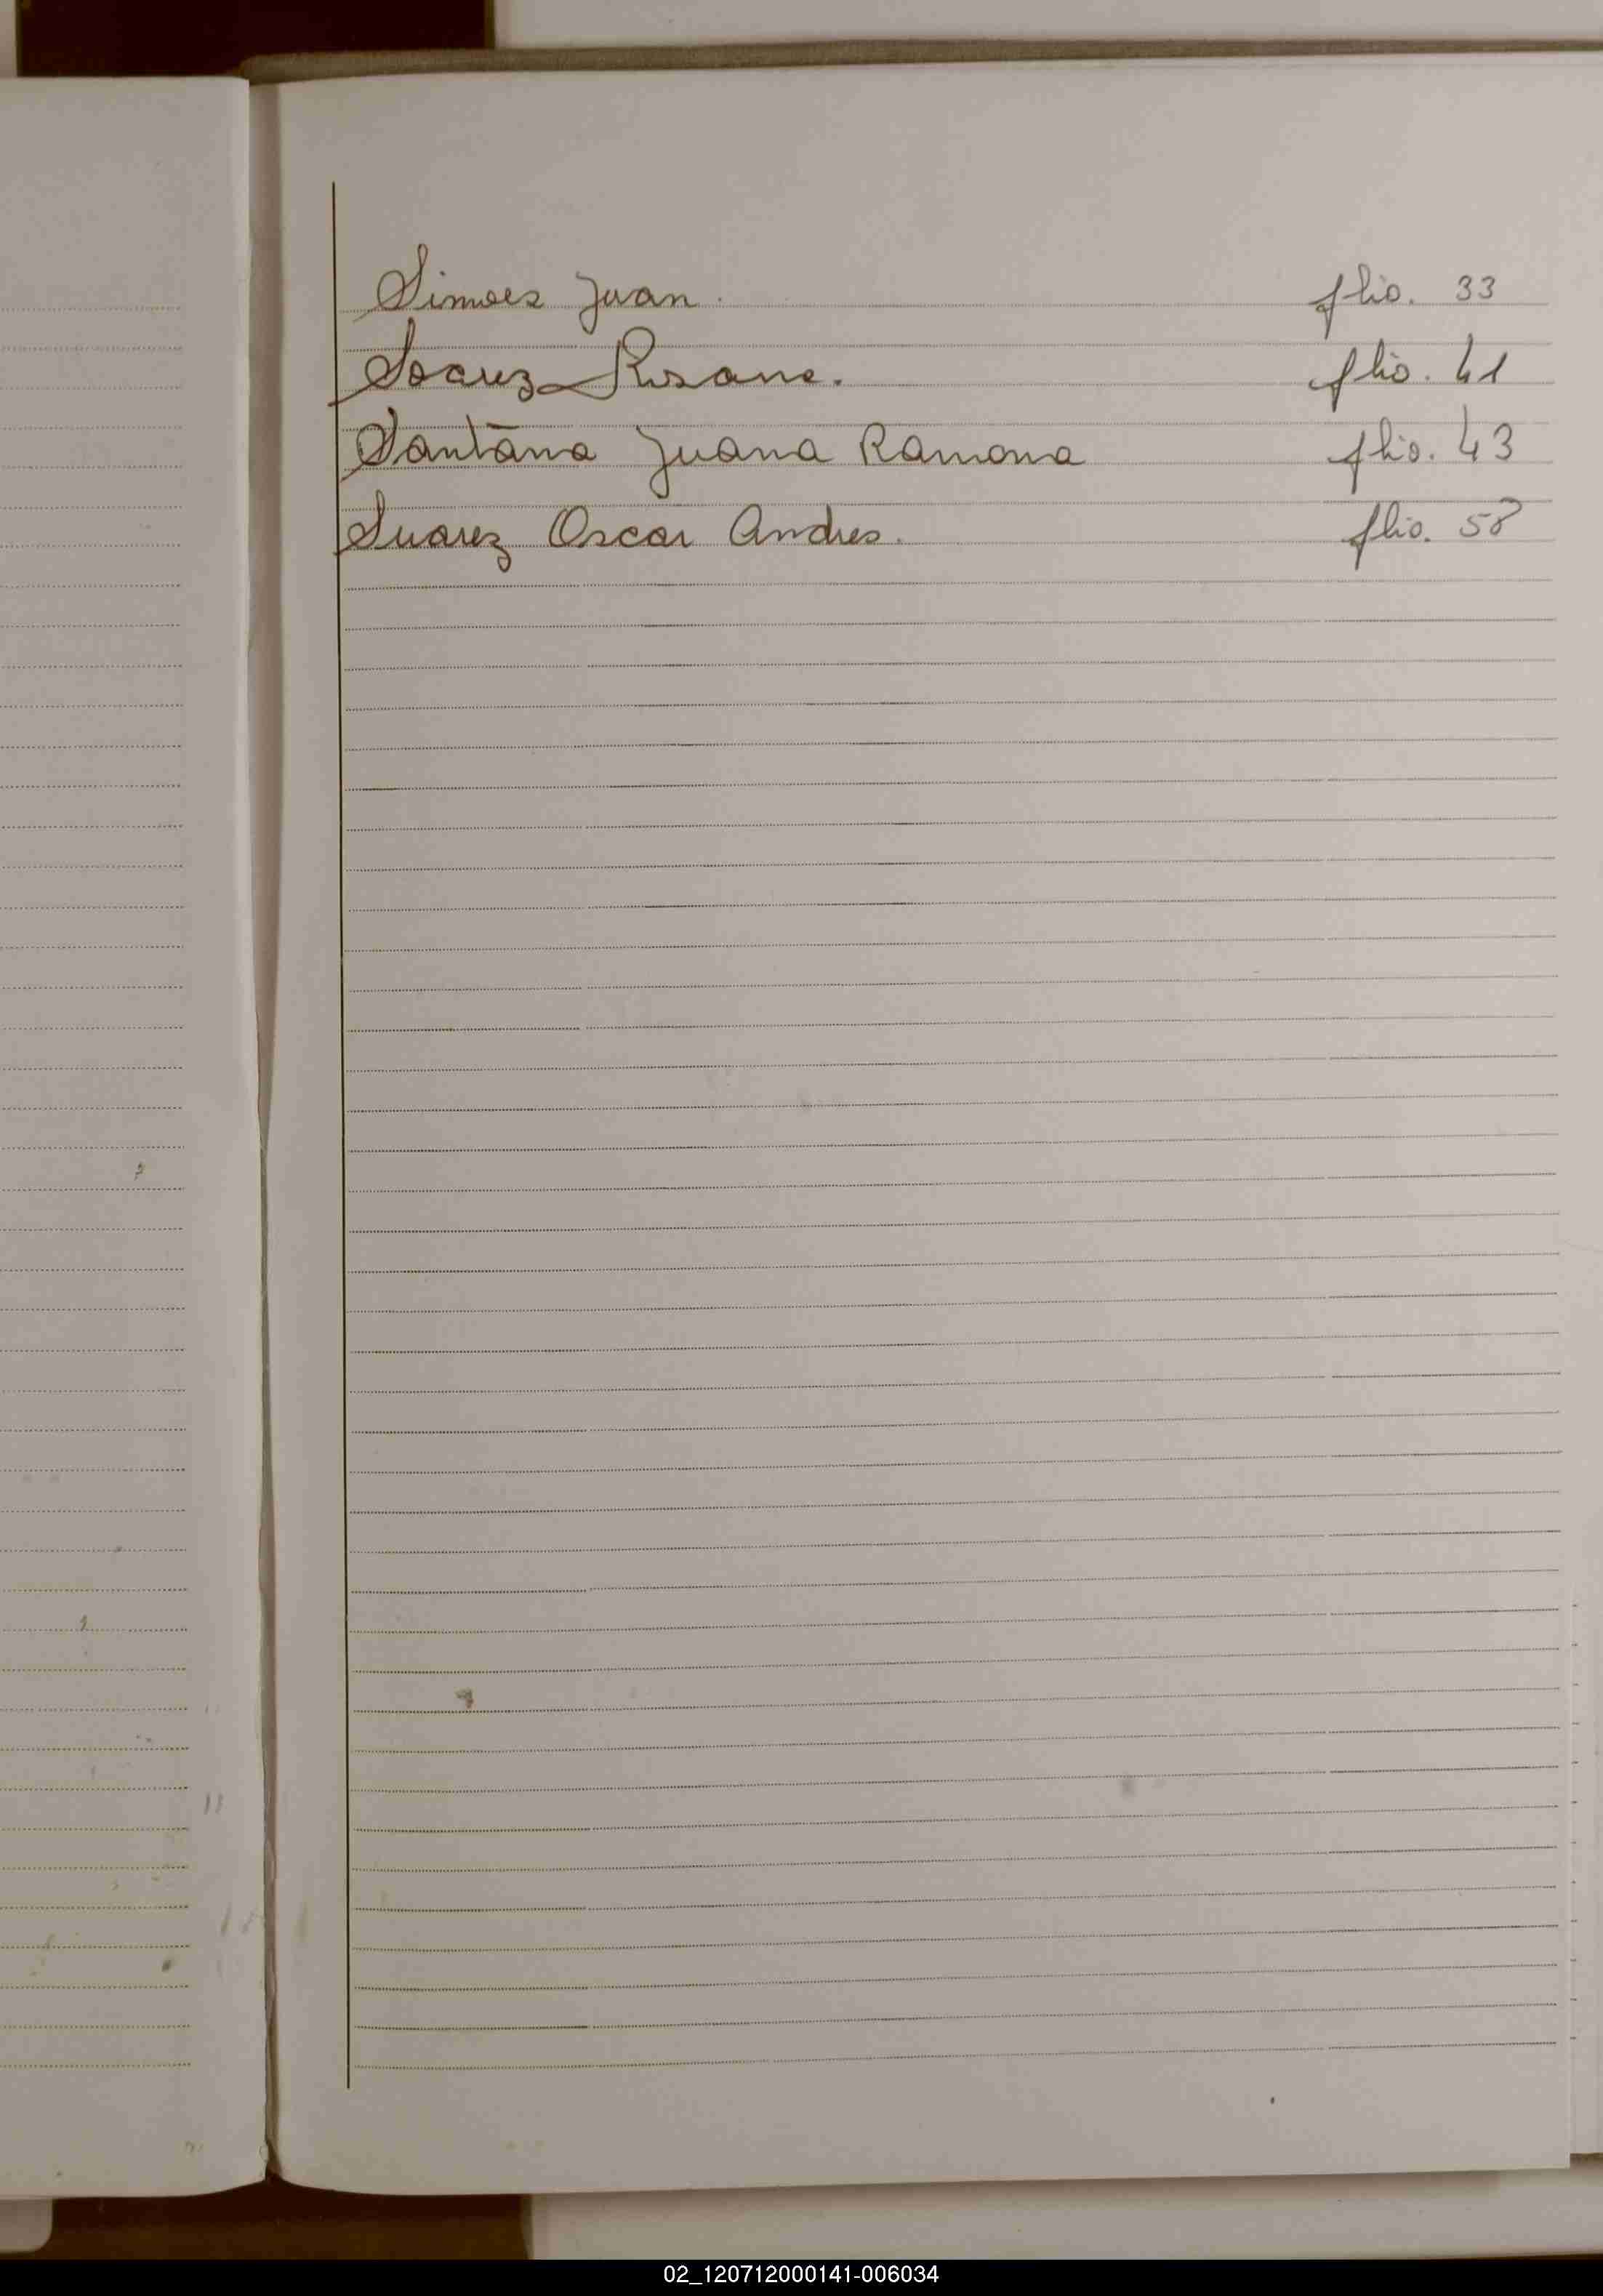 Simoes Juan. flio. 33
Soarez Rosane. flio. 41
Santāna Juana Ramona flio. 43
Suarez Oscar Andres. flio. 58
02_120712000141-006034